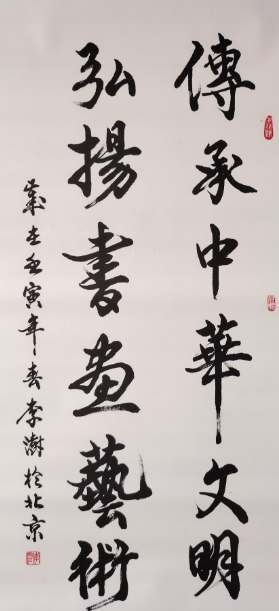 傳承中華文明
弘揚書畫藝術
歲在壬寅年春李澍於北京